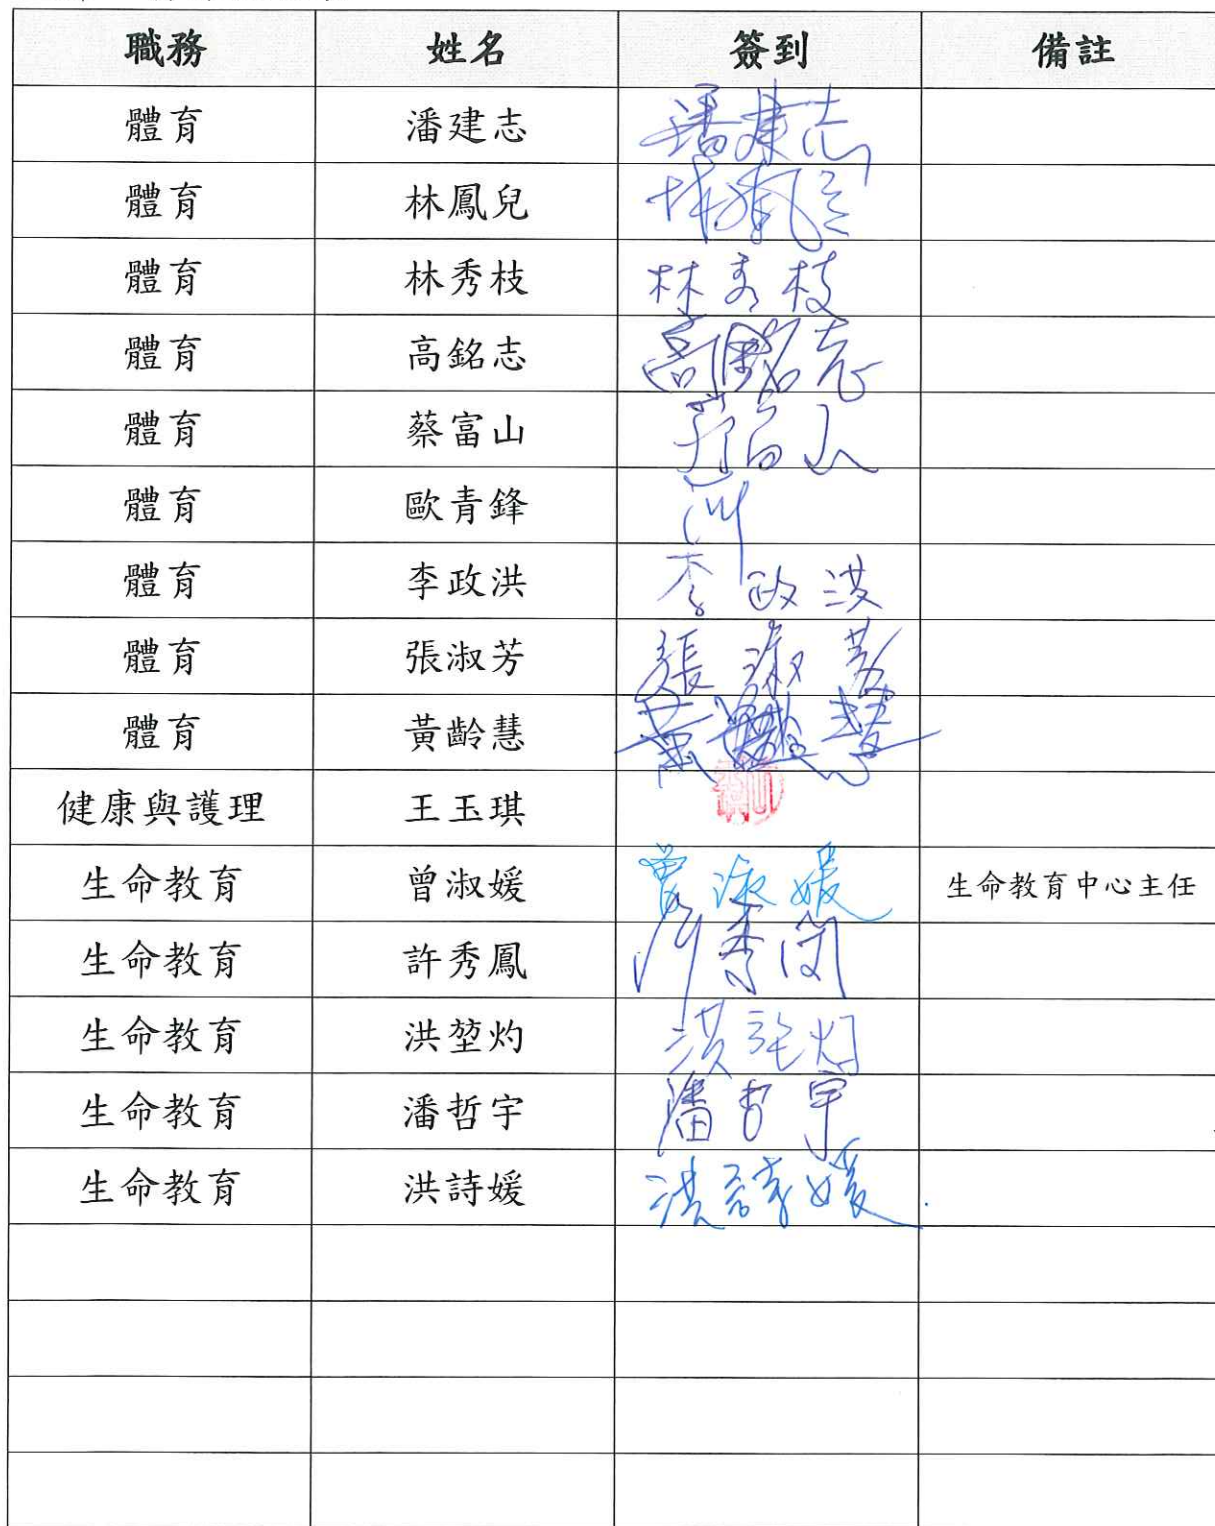 職務 姓名 簽到 備註
體育 潘建志 潘建志
體育 林鳳兒 林鳳兒
體育 林秀枝 林秀枝
體育 高銘志 高銘志
體育 蔡富山 蔡富山
體育 歐青鋒
體育 李政洪 李政洪
體育 張淑芳 張淑芳
體育 黃齡慧 黃齡慧
健康與護理 王玉琪
生命教育 曾淑媛 曾淑媛 生命教育中心主任
生命教育 許秀鳳 許秀鳳
生命教育 洪堃灼 洪堃灼
生命教育 潘哲宇 潘哲宇
生命教育 洪詩媛 洪詩媛